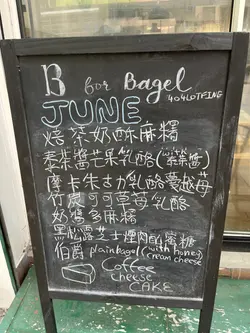 B for Bagel
404LOTFING
JUNE
焙茶奶酥麻糬
泰茶醬芒果乳酪(
摩卡朱古力乳酪蔓越莓
竹炭可可草莓乳酪
奶醬多麻糬
黑松露芝士煙肉 蜜糖
伯爵 plain bagel (with honey
cream cheese
Coffee
cheese
CAKE